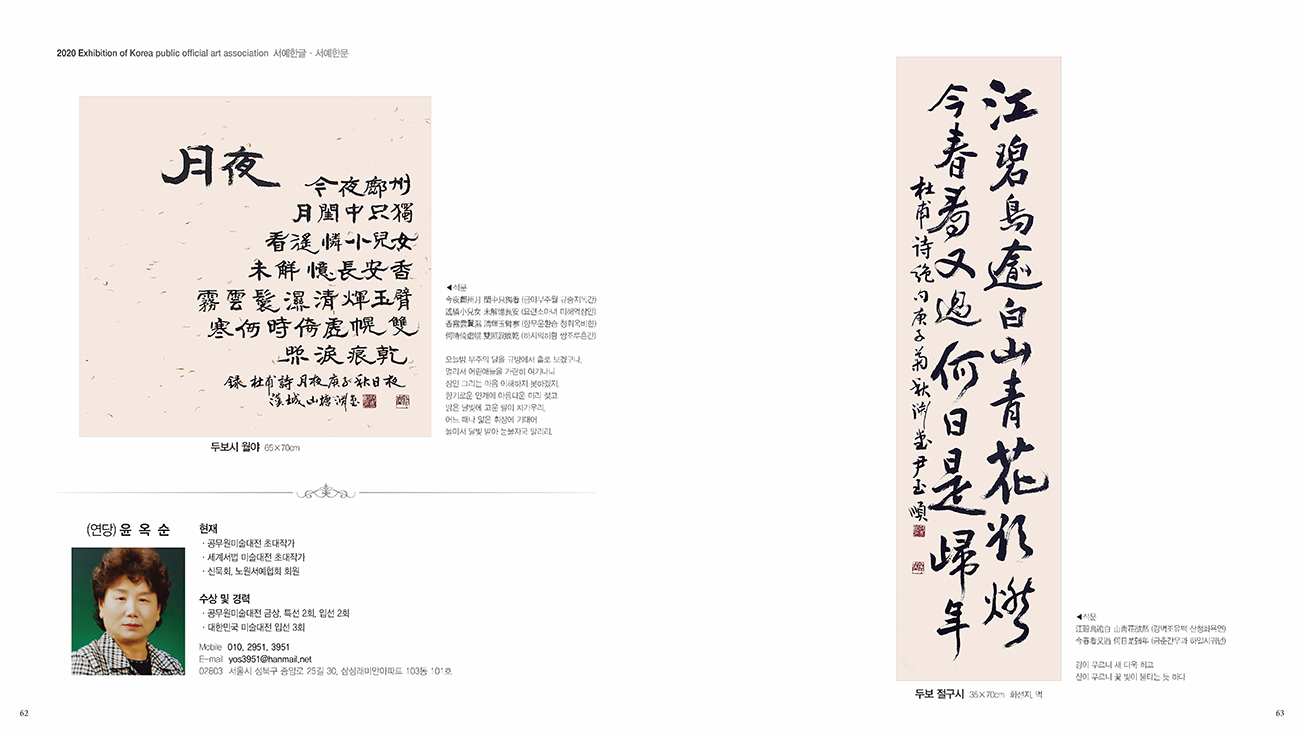 2020 Exhibition of Korea public official art association 서예한글 · 서예한문
月夜
今夜鄜州
月閨中只獨
看遙憐小兒女
未解憶長安香
霧雲鬟濕清輝玉臂
寒何時倚虛幌雙
照淚痕乾
錄杜甫詩月夜庚子秋日夜
漢城山塘淵堂
두보시 월야 65×70cm
◀석문
今夜鄜州月 閨中只獨看 (금야부주월 규중지독간)
遙憐小兒女 未解憶長安 (요련소아녀 미해억장안)
香霧雲鬟濕 清輝玉臂寒 (향무운환습 청휘옥비한)
何時倚虛幌 雙照淚痕乾 (하시의허황 쌍조루흔간)
오늘밤 부주의 달을 규방에서 홀로 보겠구나.
멀리서 어린애들을 가련히 여기나니
장안 그리는 마음 이해하지 못하겠지.
향기로운 안개에 아름다운 머리 젖고
맑은 달빛에 고운 팔이 차가우리.
어느 때나 얇은 휘장에 기대어
둘이서 달빛 받아 눈물자국 말리리.
(연당) 윤 옥 순
현재
· 공무원미술대전 초대작가
· 세계서법 미술대전 초대작가
· 신묵회, 노원서예협회 회원
수상 및 경력
· 공무원미술대전 금상, 특선 2회, 입선 2회
· 대한민국 미술대전 입선 3회
Mobile 010. 2951. 3951
E-mail yos3951@hanmail.net
02803 서울시 성북구 중앙로 25길 30, 삼성래미안아파트 103동 101호
62
江碧鳥逾白山青花欲燃
今春看又過何日是歸年
杜甫詩絶句庚子菊秋淵堂尹玉順
두보 절구시 35×70cm 화선지, 먹
◀석문
江碧鳥逾白 山青花欲然 (강벽조유백 산청화욕연)
今春看又過 何日是歸年 (금춘간우과 하일시귀년)
강이 푸르니 새 더욱 희고
산이 푸르니 꽃 빛이 불타는 듯 하다
63